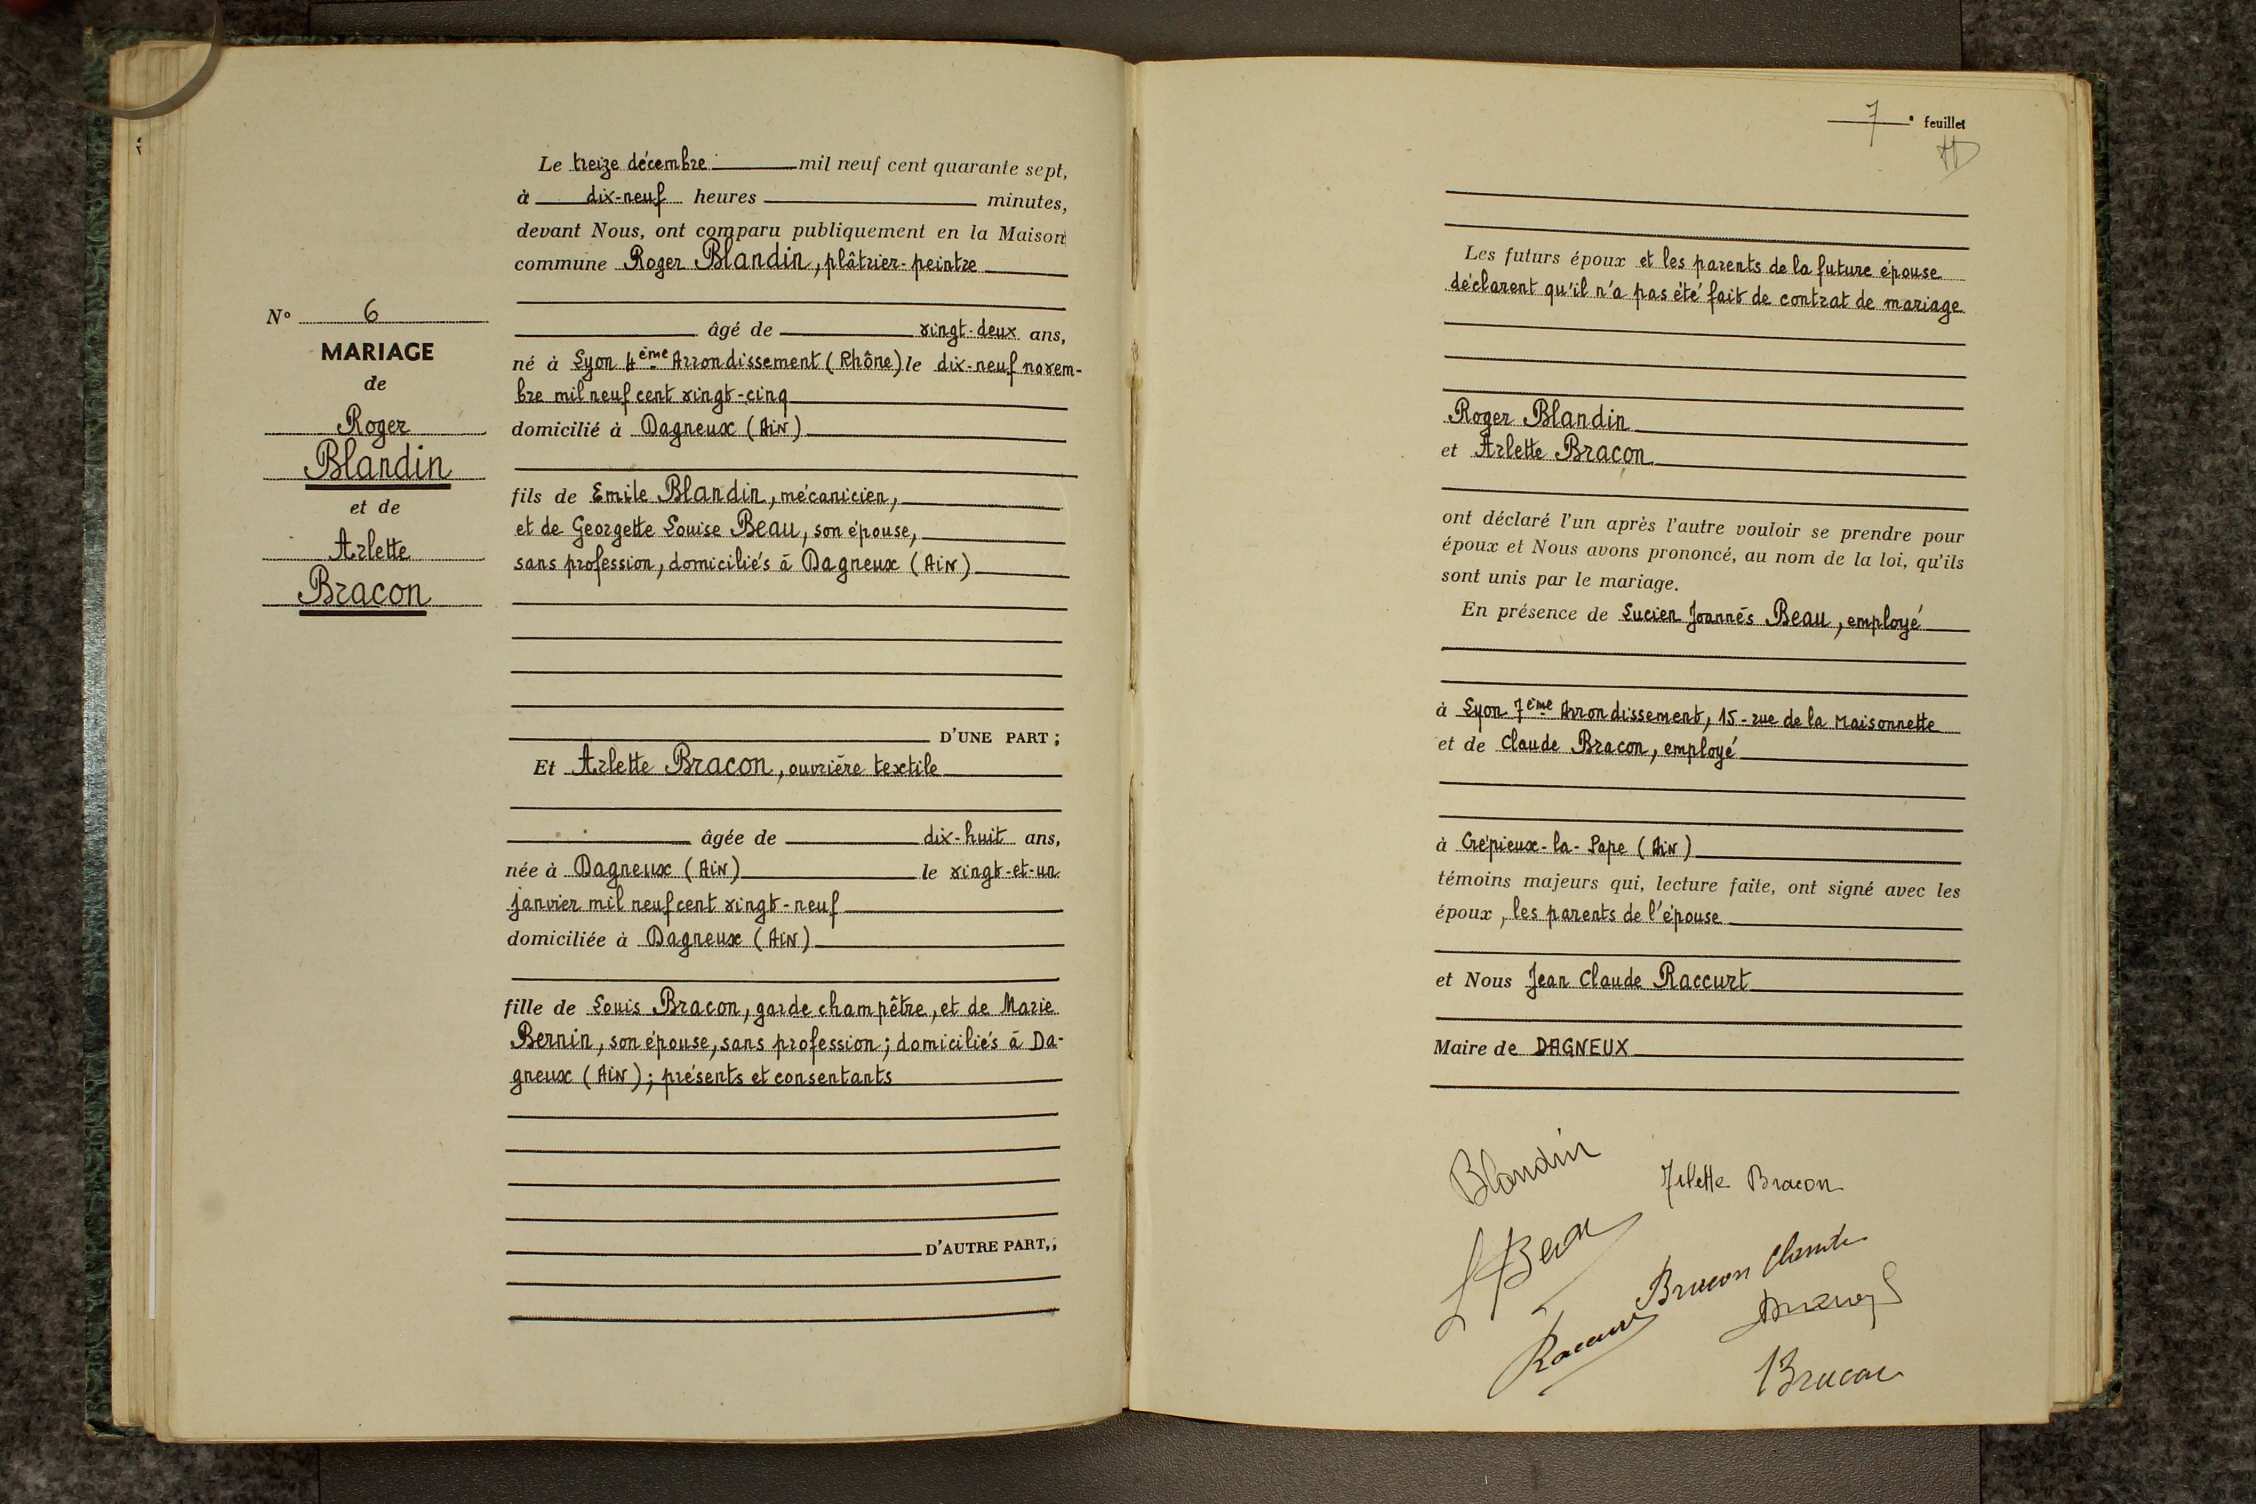 N° 6
MARIAGE
de
Roger
Blandin
et de
Arlette
Bracon
Le treize décembre mil neuf cent quarante sept,
à dix-neuf heures minutes,
devant Nous, ont comparu publiquement en la Maison
commune Roger Blandin, plâtrier-peintre
âgé de vingt-deux ans,
né à Lyon 4ème Arrondissement (Rhône) le dix-neuf novem-
bre mil neuf cent vingt-cinq
domicilié à Dagneux (Ain)
fils de Emile Blandin, mécanicien,
et de Georgette Louise Beau, son épouse,
sans profession, domiciliés à Dagneux (Ain)
D'UNE PART ;
Et Arlette Bracon, ouvrière textile
âgée de dix-huit ans,
née à Dagneux (Ain) le vingt-et-un
janvier mil neuf cent vingt-neuf
domiciliée à Dagneux (Ain)
fille de Louis Bracon, garde champêtre, et de Marie
Bernin, son épouse, sans profession ; domiciliés à Da-
gneux (Ain) ; présents et consentants
D'AUTRE PART,;
7 e feuillet
Les futurs époux et les parents de la future épouse
déclarent qu'il n'a pas été fait de contrat de mariage
Roger Blandin
et Arlette Bracon
ont déclaré l'un après l'autre vouloir se prendre pour
époux et Nous avons prononcé, au nom de la loi, qu'ils
sont unis par le mariage.
En présence de Lucien Joannès Beau, employé
à Lyon 7ème Arrondissement, 15 - rue de la Maisonnette
et de Claude Bracon, employé
à Crépieux-la-Pape (Ain)
témoins majeurs qui, lecture faite, ont signé avec les
époux, les parents de l'épouse
et Nous Jean Claude Raccurt
Maire de DAGNEUX
Blandin
Arlette Bracon
L Beau
Bracon Claude
Raccurt
Bracon